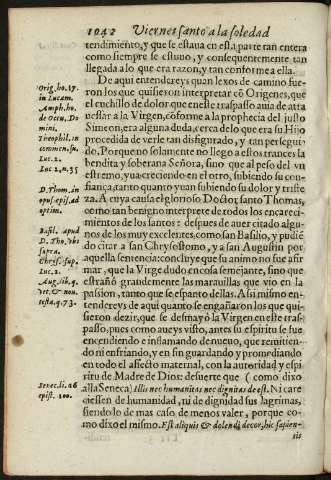 1042 Viernes santo a la soledad
tendimiẽto, y que se estaua en esta parte tan entera
como siempre se estuuo, y consequentemente tan
llegada a lo que era razon, y tan conforme a ella.
De aqui entendereys quan lexos de camino fue-
ron los que quisieron interpretar cõ Origenes, que
el cuchillo de dolor que en este traspasso auia de atra
uessar a la Virgen, cõforme a la prophecia del justo
Simeon, era alguna duda, cerca de lo que era su Hijo
procedida de verle tan disfigurado, y tan persegui-
do. Porque no solamente no llego a estos trances la
bendita y soberana Señora, sino que al peso del vn
estremo, yua creciendo en el otro, subiendo su con-
fiança, tanto quanto yuan subiendo su dolor y triste
za. A cuya causa el glorioso Doctor santo Thomas,
como tan benigno interprete de todos los encareci-
mientos de los santos: despues de auer citado algu-
nos de los muy excelentes, como san Basilio, y pudiẽ
do citar a san Chrysostomo, y a san Augustin por
aquella sentencia: concluye que su animo no fue afir
mar, que la Virgẽ dudo en cosa semejante, sino que
estrañó grandemente las marauillas que vio en la
passion, tanto que se espanto dellas. Assi mismo en-
tendereys de aqui quanto se engañaron los que qui-
sieron dezir, que se desmayò la Virgen en este tras-
passo, pues como aueys visto, antes su espiritu se fue
encendiendo e inflamando de nueuo, que remitien-
do ni enfriando, y en fin guardando y promediando
en todo el affecto maternal, con la autoridad y espi
ritu de Madre de Dios: de suerte que (como dixo
alla Seneca) Illis nec humanitas nec dignitas deest. Ni care
ciessen de humanidad, ni de dignidad sus lagrimas,
siendo lo de mas caso de menos valer, porque co-
mo dixo el mismo. Est aliquis & dolendi decor, hic sapien-
tis
Orig. ho. 17.
in Lucam.
Amph. ho.
de Occu, Do
mini,
Theophil. in
commen. su.
Luc. 2.
Luc. 2, n. 35
D. Thom. in
opus. epis. ad
optim.
Basil. apud
D. Tho. vbi
supra.
Chrys. sup.
Luc. 2.
Aug. lib. q.
vet. & nou.
testa. q. 73.
Senec. li. 16
epist. 100.